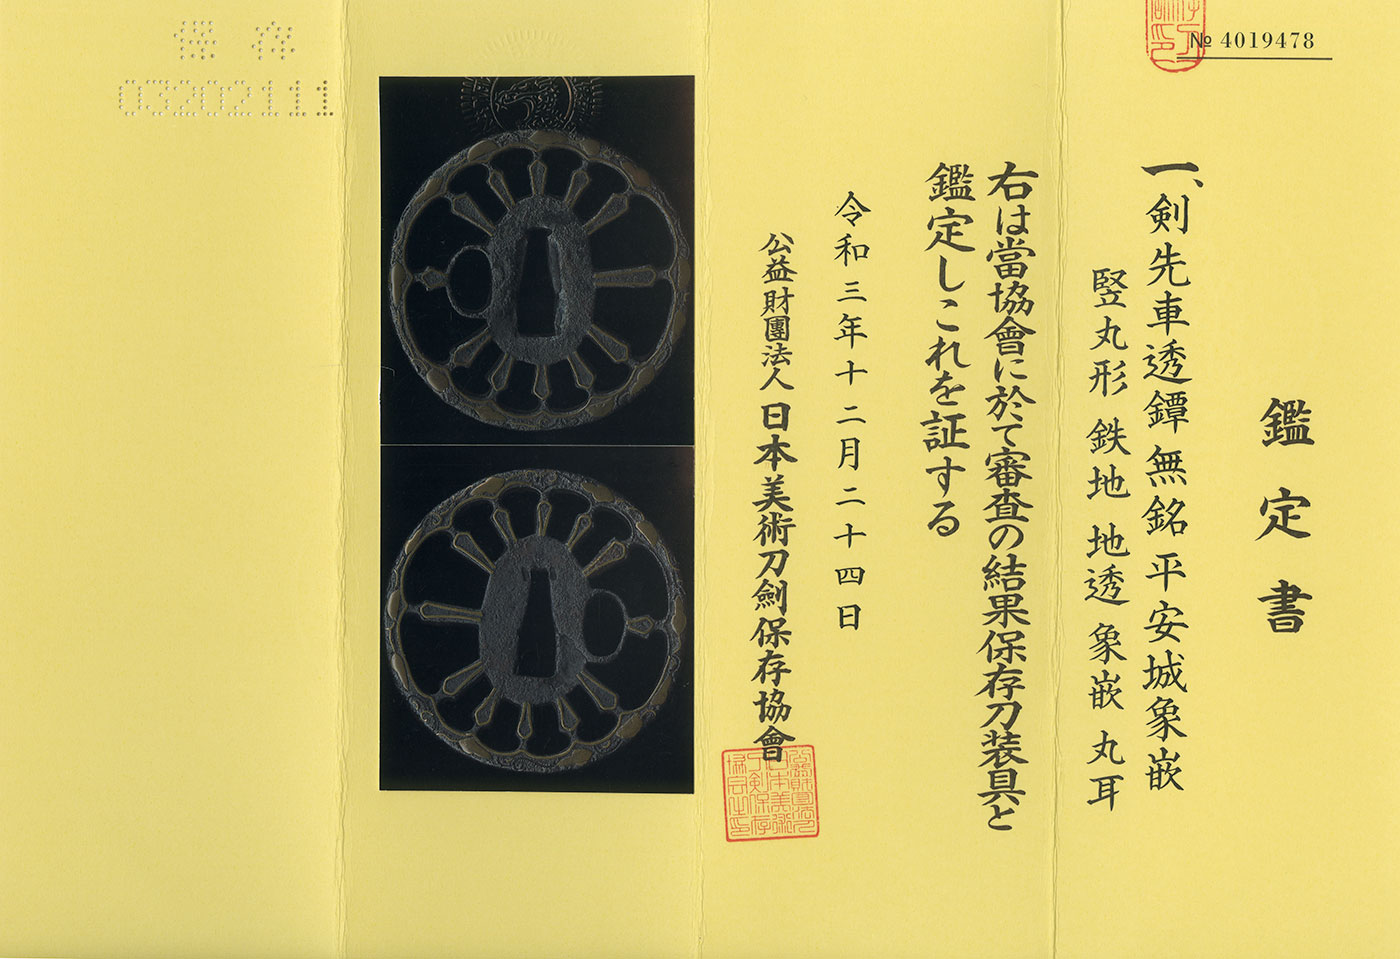 № 4019478
鑑定書
一、剣先車透鐔 無銘 平安城象嵌
竪丸形 鉄地 地透 象嵌 丸耳
右は當協會に於て審査の結果保存刀装具と
鑑定しこれを証する
令和三年十二月二十四日
公益財團法人 日本美術刀劍保存協會
保存
03202111